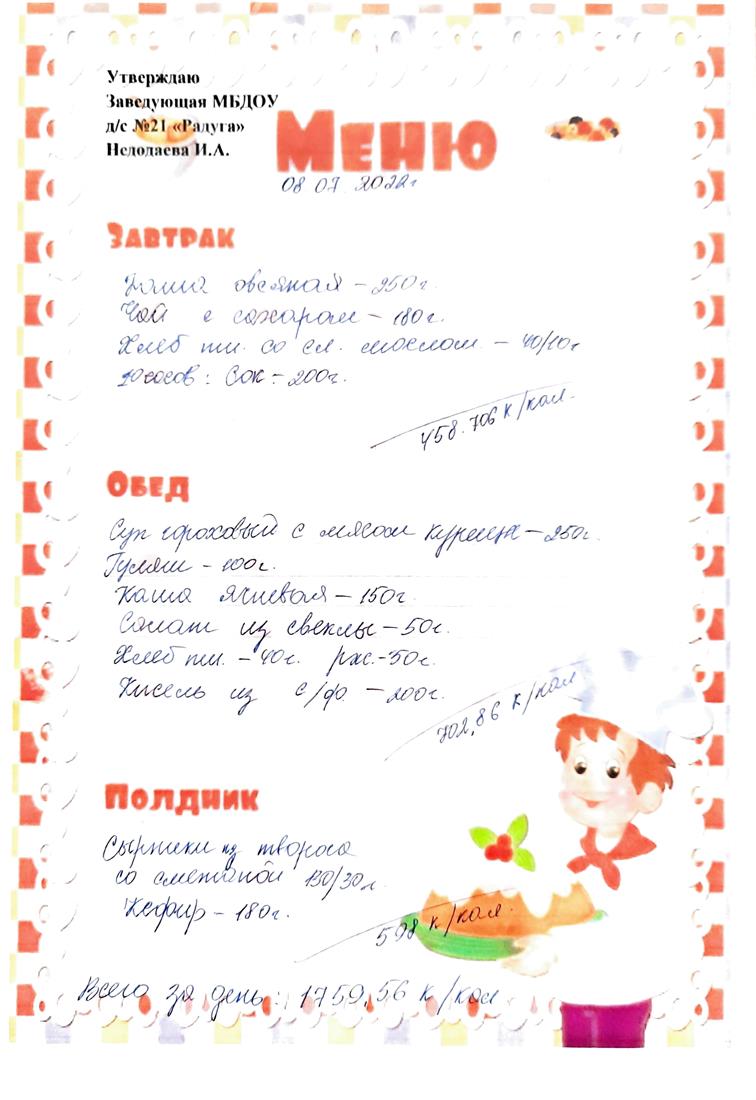 Утверждаю
Заведующая МБДОУ
д/с №21 «Радуга»
Недодаева И.А.
Меню
08 07 2022г
Завтрак
Каша овсяная – 250г.
Чай с сахаром – 180г.
Хлеб пш. со сл. маслом – 40/10г
10 часов: Сок – 200г.
458.706 к/кал.
Обед
Суп гороховый с мясом курицы – 250г.
Гуляш – 100г.
Каша ячневая – 150г
Салат из свеклы – 50г.
Хлеб пш. – 40г. рж. – 50г.
Кисель из с/ф – 200г.
702,86 к/кал
Полдник
Сырники из творога
со сметаной 130/30г.
Кефир – 180г.
598 к/кал.
Всего за день: 1759,56 к/кал